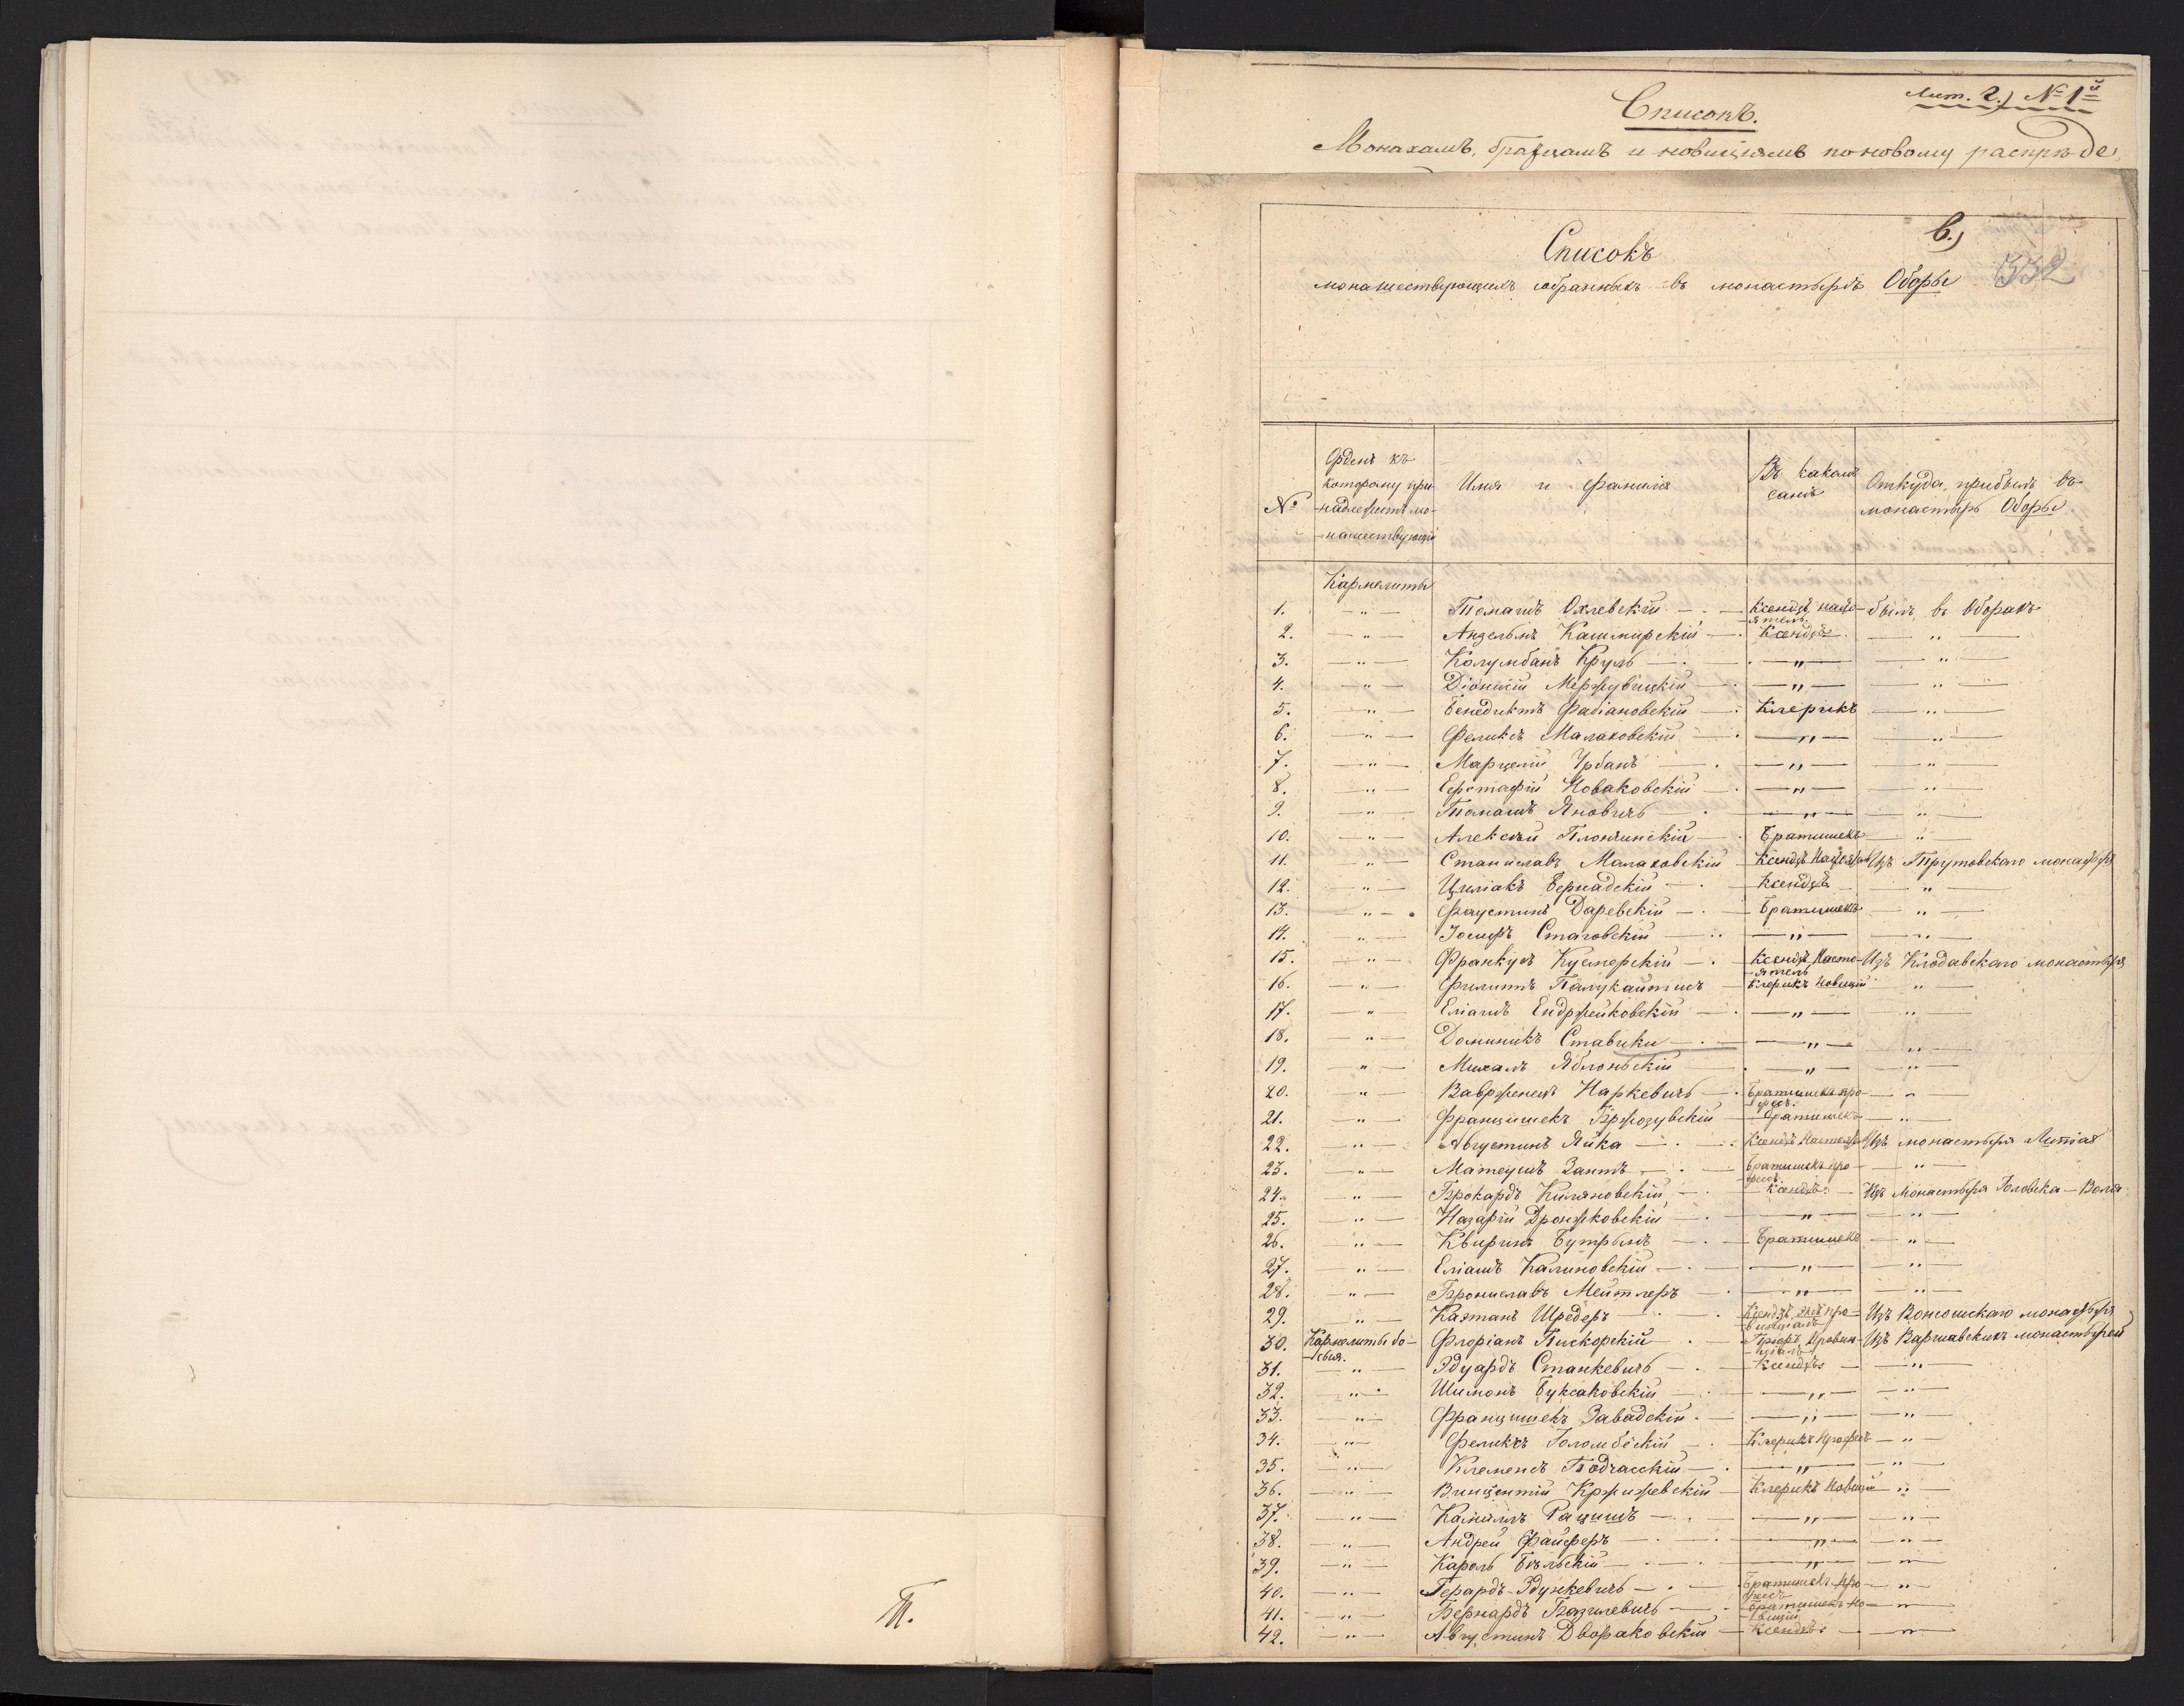 П.
Лит. 2.) № 1й
Списокъ.
Монахамъ, братцамъ и новиціямъ по новому распредѣ
в.)
332
Списокъ
монашествующихъ собранныхъ въ монастырѣ Оборы
№ Орденъ къ которому при-надлежитъ мо-нашествующій Имя и Фамилія Въ какомъ санѣ Откуда прибылъ въ монастырь Оборы
Кармелиты
1. — " — Томашъ Охлевскій — Ксендзъ настоятель былъ въ Оборахъ
2. — " — Анзельмъ Кашмирскій — Ксендзъ — " —
3. — " — Колумбанъ Круль — " — — " —
4. — " — Діонизій Мержувицкій — " — — " —
5. — " — Бенедиктъ Фабіановскій — Клерикъ — " —
6. — " — Феликсъ Малаховскій — " — — " —
7. — " — Марцелій Урбанъ — " — — " —
8. — " — Новаковскій — " — — " —
9. — " — Томашъ Яновичъ — " — — " —
10. — " — Алексѣй Плончинскій — Братишекъ — " —
11. — " — Станиславъ Малаховскій — Ксендзъ Изъ Трутовскаго монастыря
12. — " — Бернадскій — Ксендзъ — " —
13. — " — Фаустинъ Даревскій — Братишекъ — " —
14. — " — Іосифъ — " — — " —
15. — " — Кусмерскій — Ксендзъ Насто-ятель Изъ Клодавскаго монастыря
16. — " — Филиппъ Палукайтисъ — Клерикъ Новицій — " —
17. — " — Еліашъ Ендржейковскій — " — — " —
18. — " — Доминикъ Ставики — " — — " —
19. — " — Михалъ Яблоньскій — " — — " —
20. — " — Ваврженецъ Наркевичъ — Братишекъ про-фесъ — " —
21. — " — Францишекъ Бржозувскій — Братишекъ — " —
22. — " — Августинъ Яйка — Ксендзъ Изъ монастыря
23. — " — Матеушъ Зантъ — Братишекъ про-фесъ — " —
24. — " — Брокардъ Киляновскій — Ксендзъ — Изъ Монастыря Головска-Воля
25. — " — Назарій Дронжковскій — " — — " —
26. — " — Квиринъ Бутрымъ — Братишекъ — " —
27. — " — Еліашъ Калиновскій — " — — " —
28. — " — Брониславъ Мейтлеръ — " — — " —
29. — " — Каэтанъ Шредеръ — Ксендзъ Изъ Вонсошскаго монастыря
30. Кармелиты бо-сыя. Флоріанъ Пискорскій — Пріоръ Провин-ціалъ Изъ Варшавскихъ монастырей
31. — " — Эдуардъ Станкевичъ — Ксендзъ — " —
32. — " — Шимонъ Буксаковскій — " — — " —
33. — " — Францишекъ Завадскій — " — — " —
34. — " — Феликсъ Голомбскій — Клерикъ Професъ — " —
35. — " — Клеменсъ Подчасскій — " — — " —
36. — " — Винцентій Кржижевскій — Клерикъ Новицій — " —
37. — " — Камиллъ Рацишъ — " — — " —
38. — " — Андрей Файферъ — " — — " —
39. — " — Кароль Бѣльскій — " — — " —
40. — " — Герардъ Эдункевичъ — Братишекъ про-фесъ — " —
41. — " — Бернардъ Базилевичъ — Братишекъ но-вицій — " —
42. — " — Августинъ Двораковскій — Ксендзъ — " —